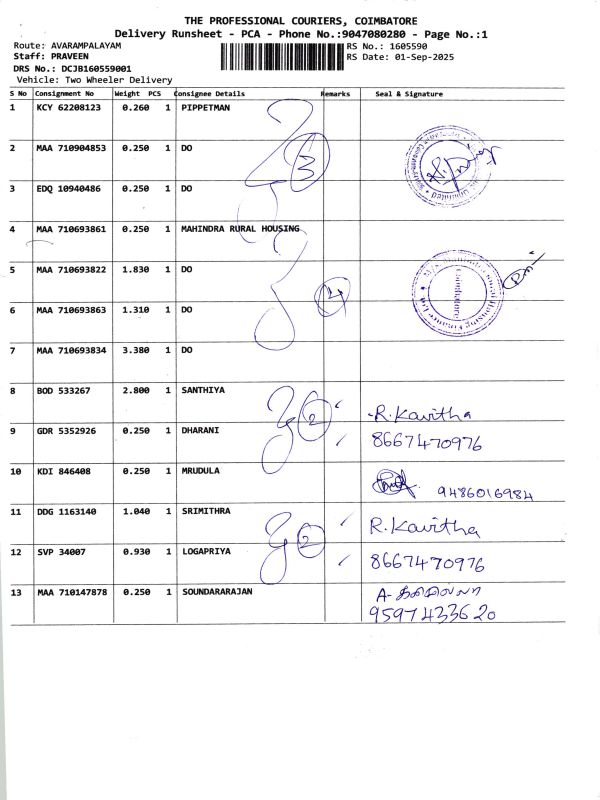 THE PROFESSIONAL COURIERS, COIMBATORE
Delivery Runsheet - PCA - Phone No.:9047080280 - Page No.:1
Route: AVARAMPALAYAM RS No.: 1605590
Staff: PRAVEEN RS Date: 01-Sep-2025
DRS No.: DCJB160559001
Vehicle: Two Wheeler Delivery
S No Consignment No Weight PCS Consignee Details Remarks Seal & Signature
1 KCY 62208123 0.260 1 PIPPETMAN
2 MAA 710904853 0.250 1 DO 3
3 EDQ 10940486 0.250 1 DO
4 MAA 710693861 0.250 1 MAHINDRA RURAL HOUSING
5 MAA 710693822 1.830 1 DO
6 MAA 710693863 1.310 1 DO 4
7 MAA 710693834 3.380 1 DO
8 BOD 533267 2.800 1 SANTHIYA 2 R. Kavitha
9 GDR 5352926 0.250 1 DHARANI 8667470976
10 KDI 846408 0.250 1 MRUDULA 9486016984
11 DDG 1163140 1.040 1 SRIMITHRA R. Kavitha
12 SVP 34007 0.930 1 LOGAPRIYA 2 8667470976
13 MAA 710147878 0.250 1 SOUNDARARAJAN A-
9597433620